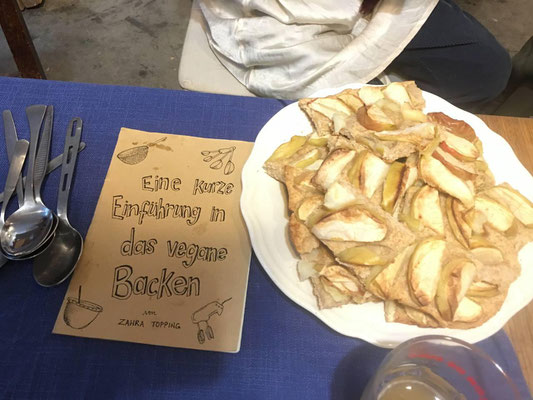 Eine kurze
Einführung in
das vegane
Backen
von
ZAHRA TOPPING